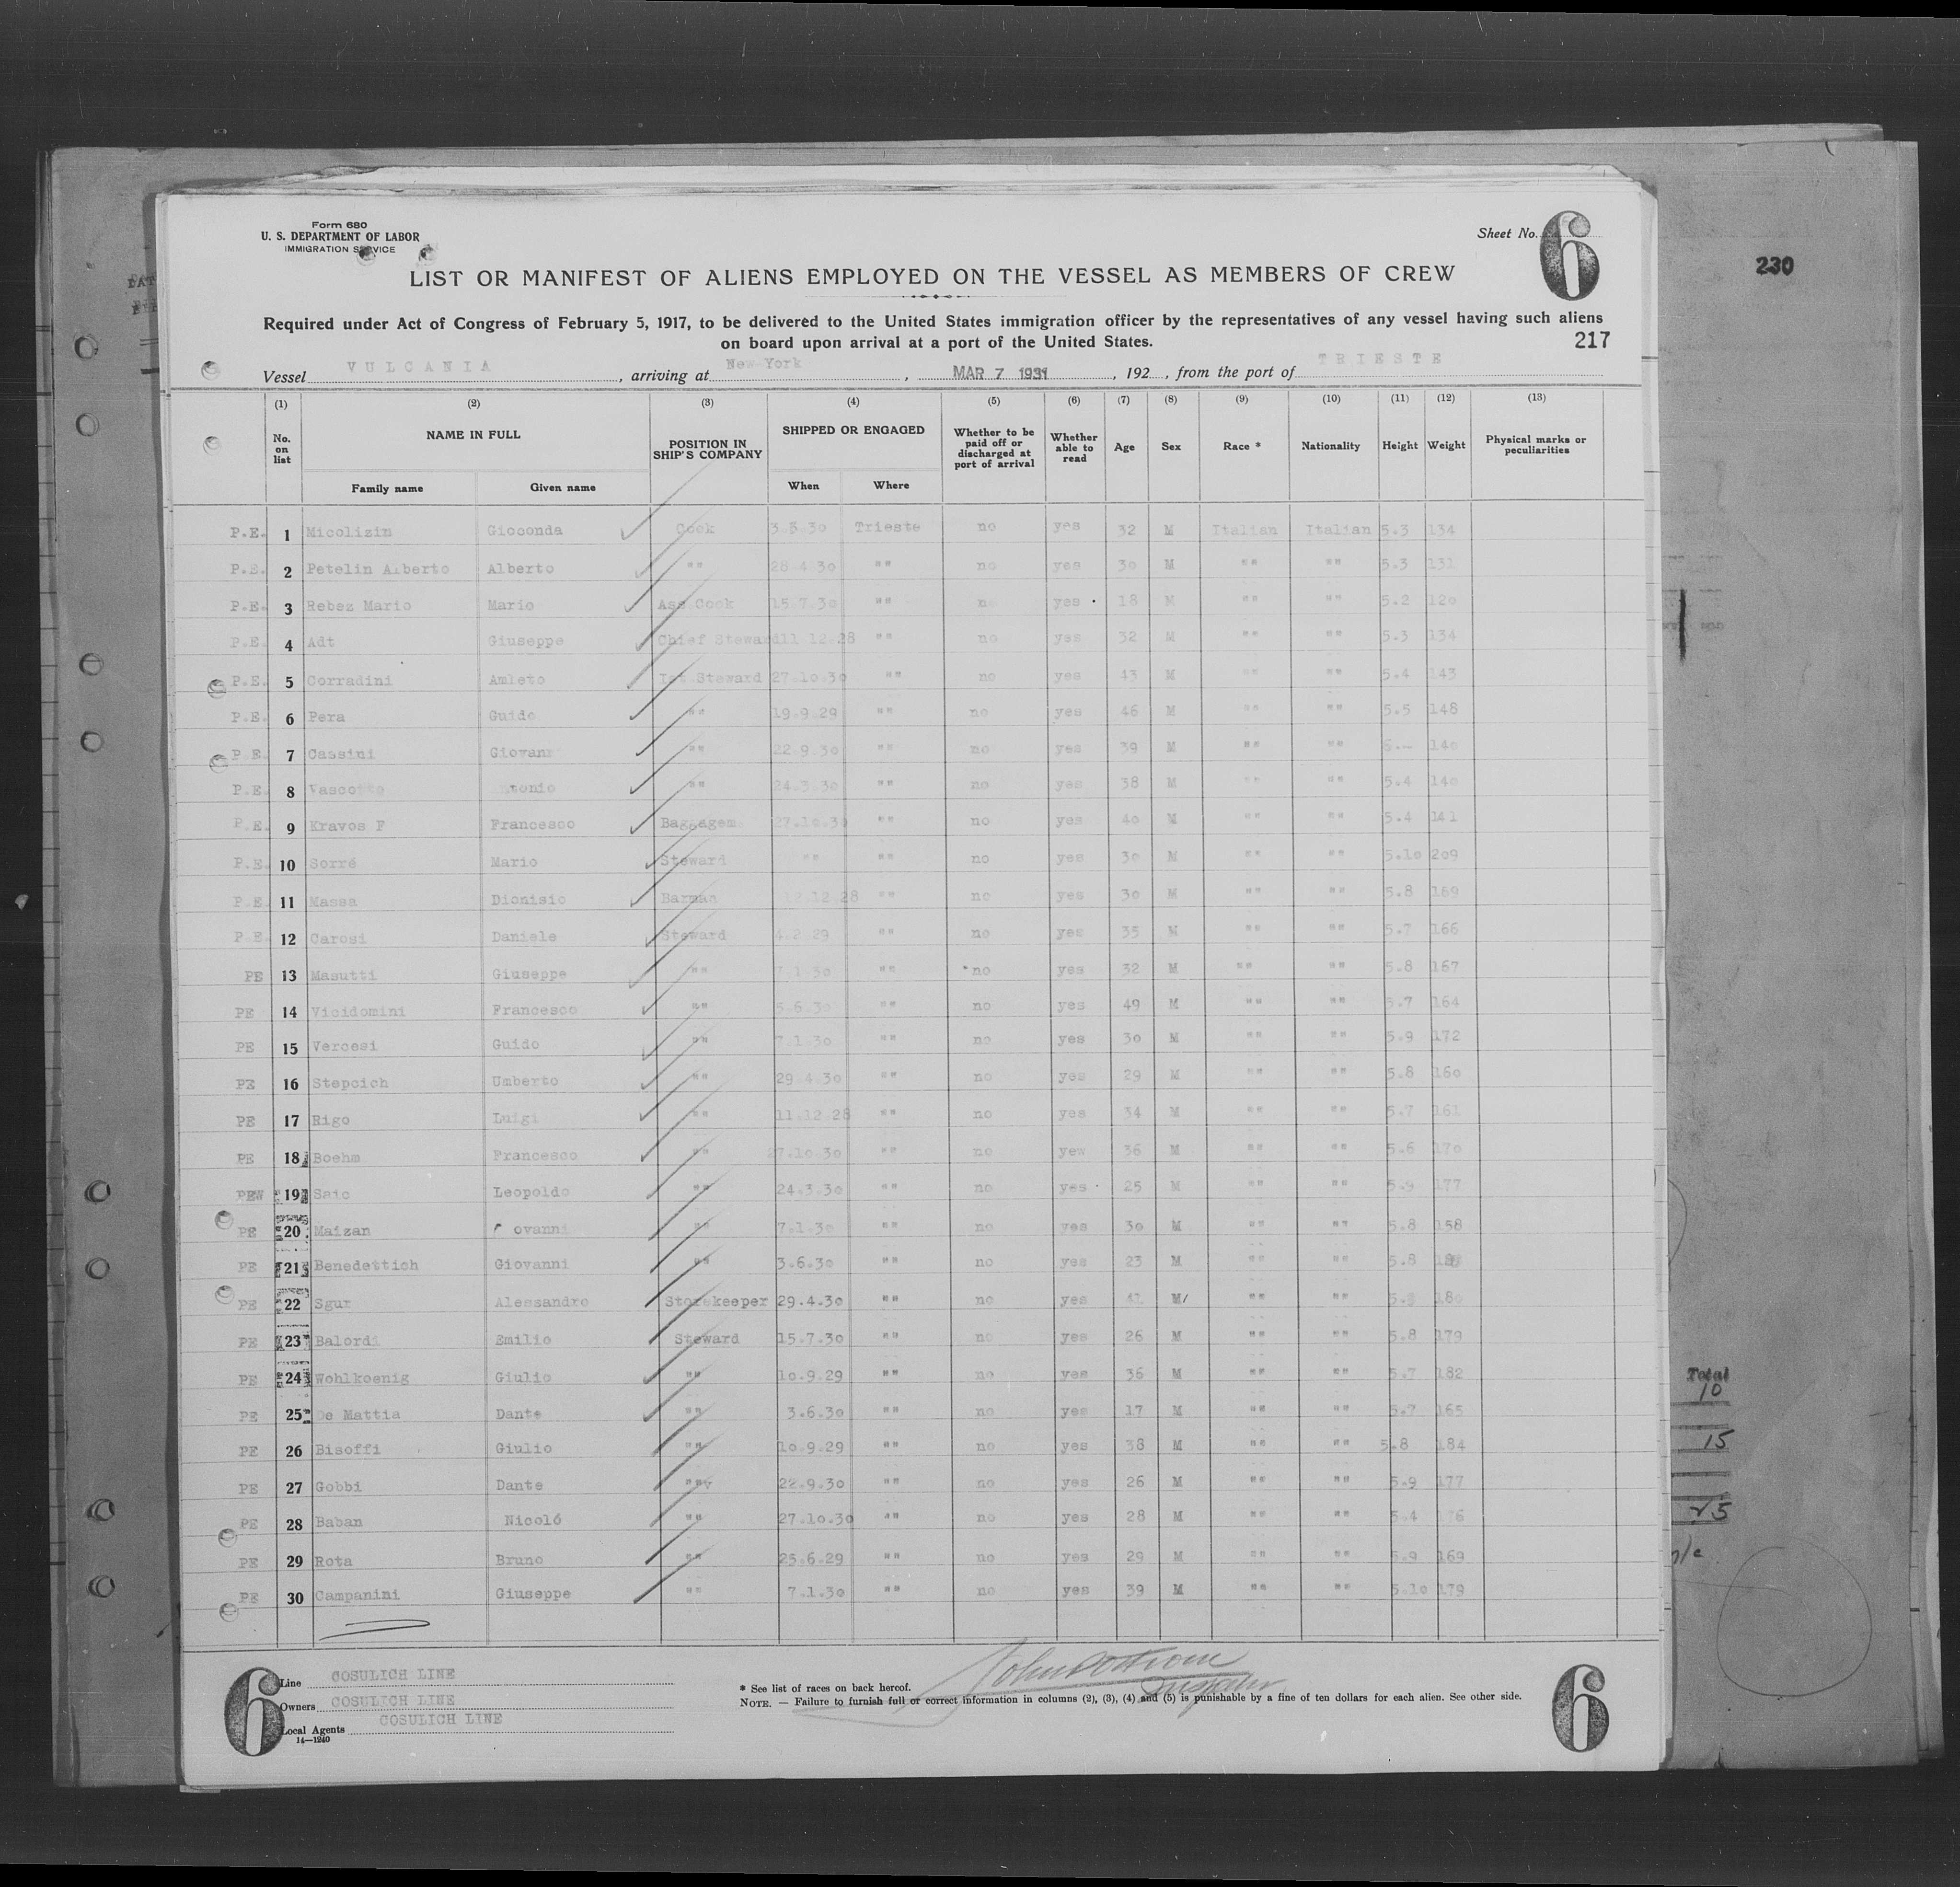 Form 680
U. S. DEPARTMENT OF LABOR
IMMIGRATION SERVICE
Sheet No. 6
230
LIST OR MANIFEST OF ALIENS EMPLOYED ON THE VESSEL AS MEMBERS OF CREW
Required under Act of Congress of February 5, 1917, to be delivered to the United States immigration officer by the representatives of any vessel having such aliens
on board upon arrival at a port of the United States.
217
Vessel VULCANIA, arriving at New York, MAR 7 1931, 192 , from the port of TRIESTE
(1) (2) (3) (4) (5) (6) (7) (8) (9) (10) (11) (12) (13)
No. on list NAME IN FULL POSITION IN SHIP'S COMPANY SHIPPED OR ENGAGED Whether to be paid off or discharged at port of arrival Whether able to read Age Sex Race * Nationality Height Weight Physical marks or peculiarities
Family name Given name When Where
P.E. 1 Micolizin Gioconda Cook 3.5.30 Trieste no yes 32 M Italian Italian 5.3 134
P.S. 2 Petelin Alberto Alberto "" 28.4.30 "" no yes 30 M "" "" 5.3 131
P.E. 3 Rebez Mario Mario Ass Cook 15.7.30 "" no yes 18 M "" "" 5.2 120
P.E. 4 Adt Giuseppe Chief Steward 11 12.28 "" no yes 32 M "" "" 5.3 134
P.E. 5 Corradini Amleto Ist Steward 27.10.30 "" no yes 43 M "" "" 5.4 143
P.E. 6 Pera Guido "" 19.9.29 "" no yes 46 M "" "" 5.5 148
P.E. 7 Cassini Giovani "" 22.9.30 "" no yes 39 M "" "" 6.-- 140
P.E. 8 "" 24.3.30 "" no yes 38 M "" "" 5.4 140
P.E. 9 Kravos F Francesco Baggagem 27.10.30 "" no yes 40 M "" "" 5.4 141
P.E. 10 Sorré Mario Steward "" "" no yes 30 M "" "" 5.10 209
P.E. 11 Massa Dionisio Barman 12.12.28 "" no yes 30 M "" "" 5.8 169
P.E. 12 Carosi Daniele Steward 4.2.29 "" no yes 35 M "" "" 5.7 166
PE 13 Masutti Giuseppe "" 7.1.30 "" no yes 32 M "" "" 5.8 167
PE 14 Vicidomini Francesco "" 5.6.30 "" no yes 49 M "" "" 5.7 164
PE 15 Vercesi Guido "" 7.1.30 "" no yes 30 M "" "" 5.9 172
PE 16 Stepcich Umberto "" 29.4.30 "" no yes 29 M "" "" 5.8 160
PE 17 Rigo Luigi "" 11.12.28 "" no yes 34 M "" "" 5.7 161
PE 18 Boehm Francesco "" 27.10.30 "" no yew 36 M "" "" 5.6 170
PEW 19 Saic Leopoldo "" 24.3.30 "" no yes 25 M "" "" 5.9 177
PE 20 Maizan ovanni "" 7.1.30 "" no yes 30 M "" "" 5.8 158
PE 21 Benedettich Giovanni "" 3.6.30 "" no yes 23 M "" "" 5.8
PE 22 Sgur Alessandro Storekeeper 29.4.30 "" no yes M "" ""
PE 23 Balordi Emilio Steward 15.7.30 "" no yes 26 M "" "" 5.8 179
PE 24 Wohlkoenig Giulio "" 10.9.29 "" no yes 36 M "" "" 5.7 182
PE 25 De Mattia Dante "" 3.6.30 "" no yes 17 M "" "" 5.7 165
PE 26 Bisoffi Giulio "" 10.9.29 "" no yes 38 M "" "" 5.8 184
PE 27 Gobbi Dante "" 22.9.30 "" no yes 26 M "" "" 5.9 177
PE 28 Baban Nicoló "" 27.10.30 "" no yes 28 M "" "" 5.4 176
PE 29 Rota Bruno "" 25.6.29 "" no yes 29 M "" "" 5.9 169
PE 30 Campanini Giuseppe "" 7.1.30 "" no yes 39 M "" "" 5.10 179
Total
10
15
25
6
Line COSULICH LINE
Owners COSULICH LINE
Local Agents COSULICH LINE
14—1240
* See list of races on back hereof.
NOTE. — Failure to furnish full or correct information in columns (2), (3), (4) and (5) is punishable by a fine of ten dollars for each alien. See other side.
6